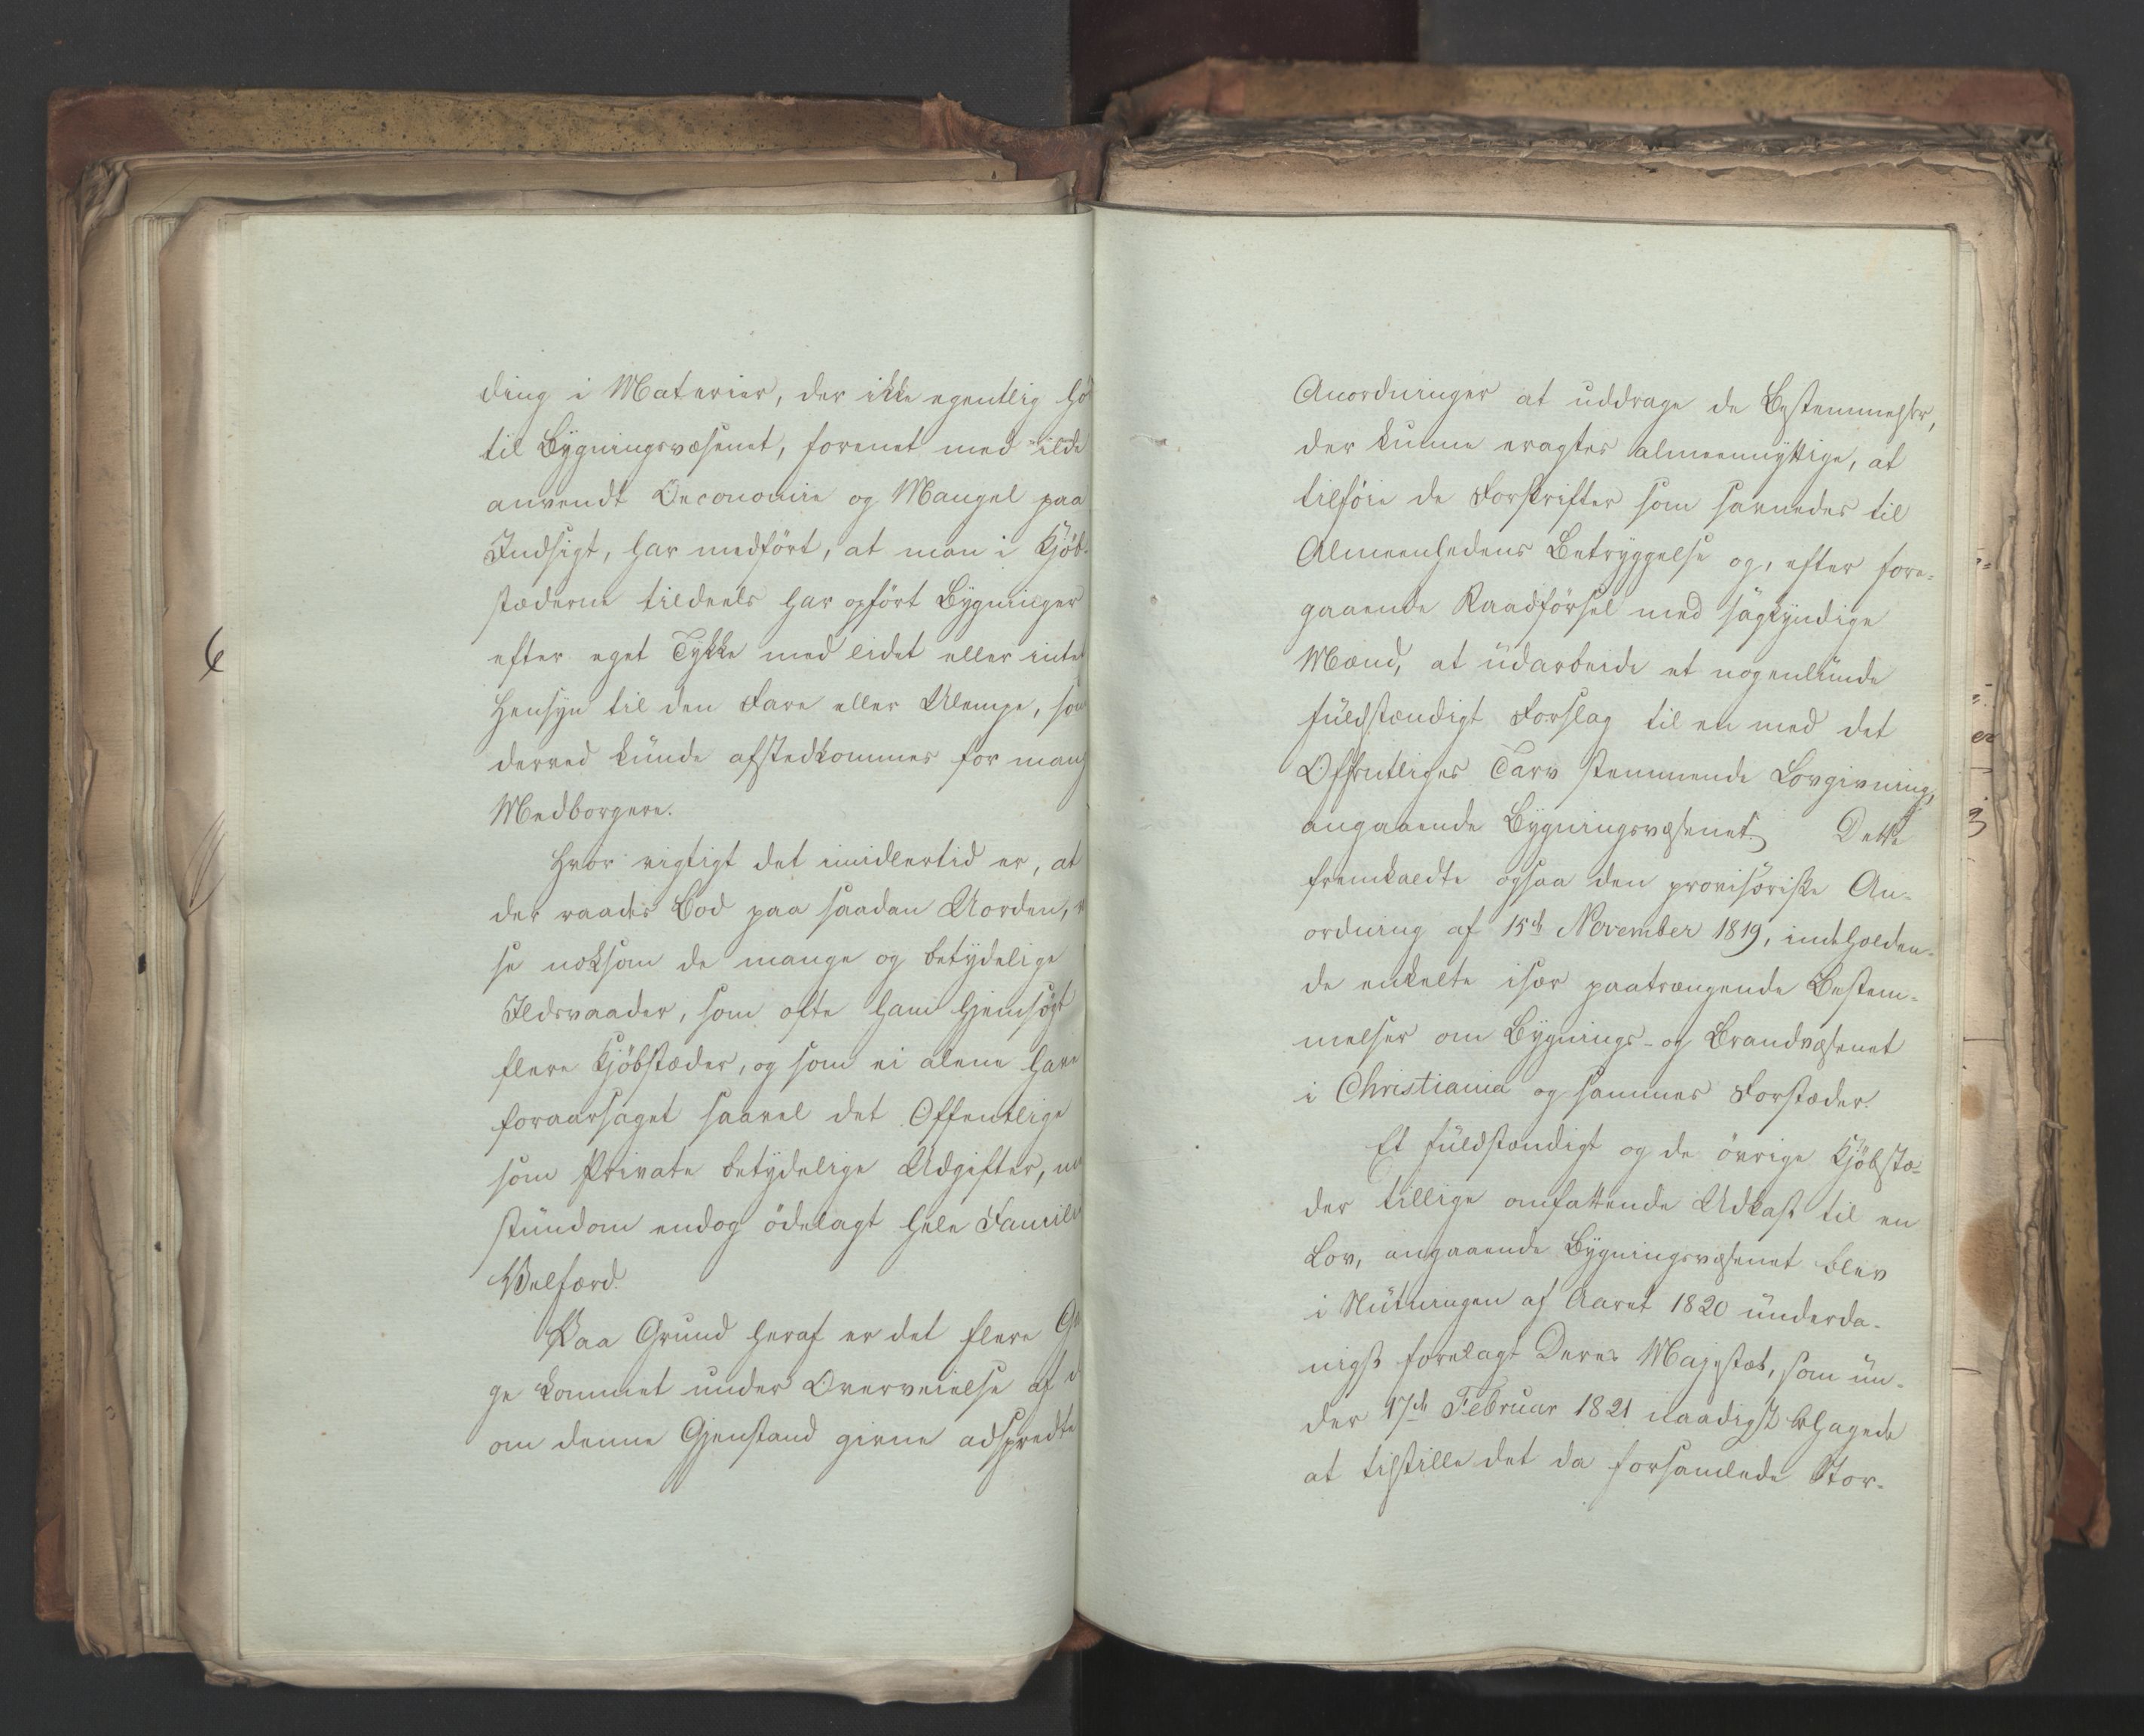 ding i Materier, der ikke egentlig hø
til Bygningsvæsenet, forenet med ilde
anvendt Oeconomie og Mangel paa
Indsigt, har medført, at man i Kjøb-
stæderne tildeels har opført Bygninger
efter eget Tykke med lidet eller intet
Hensyn til den Fare eller Ulempe, som
derved kunde afstedkommes for mang
Medborgere.
Hvor vigtigt det imidlertid er, at
der raades Bod paa saadan Uorden,
se noksom de mange og betydelige
Ildsvaader, som ofte have hjemsøgt
flere Kjøbstæder, og som ei alene have
foraarsaget saavel det Offentlige
som Private betydelige Udgifter, men
stundom endog ödelagt hele Famili
Velfærd.
Paa Grund heraf er det flere Ga
ge kommet under Overveielse af d
om denne Gjenstand givne adspredte
Anordninger at uddrage de Bestemmelser,
der kunne eragtes almeennyttige, at
tilføie de Forskrifter som savnedes til
Almeenhedens Betryggelse og, efter fore-
gaaende Raadførsel med sagkyndige
Mænd, at udarbeide et nogenlunde
fuldstændigt Forslag til en med det
Offentliges Tarv stemmende Lovgivning,
angaaende Bygningsvæsenet. Dette
fremkaldte ogsaa den provisoriske An-
ordning af 15de November 1819, indeholden-
de enkelte især paatrængende Bestem-
melser om Bygnings- og Brandvæsenet
i Christiania og sammes Forstæder.
Et fuldstændigt og de øvrige Kjøbstæ-
der tillige omfattende Udkast til en
Lov, angaaende Bygningsvæsenet blev
i Slutningen af Aaret 1820 underda-
nigst forelagt Deres Majestæt, som un-
der 17de Februar 1821 naadigst behagede
at tilstille det da forsamlede Stor-